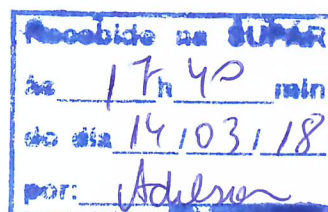 Recebido na SUPAR
Às 17 h 40 min
do dia 14/03/18
por: Adilson